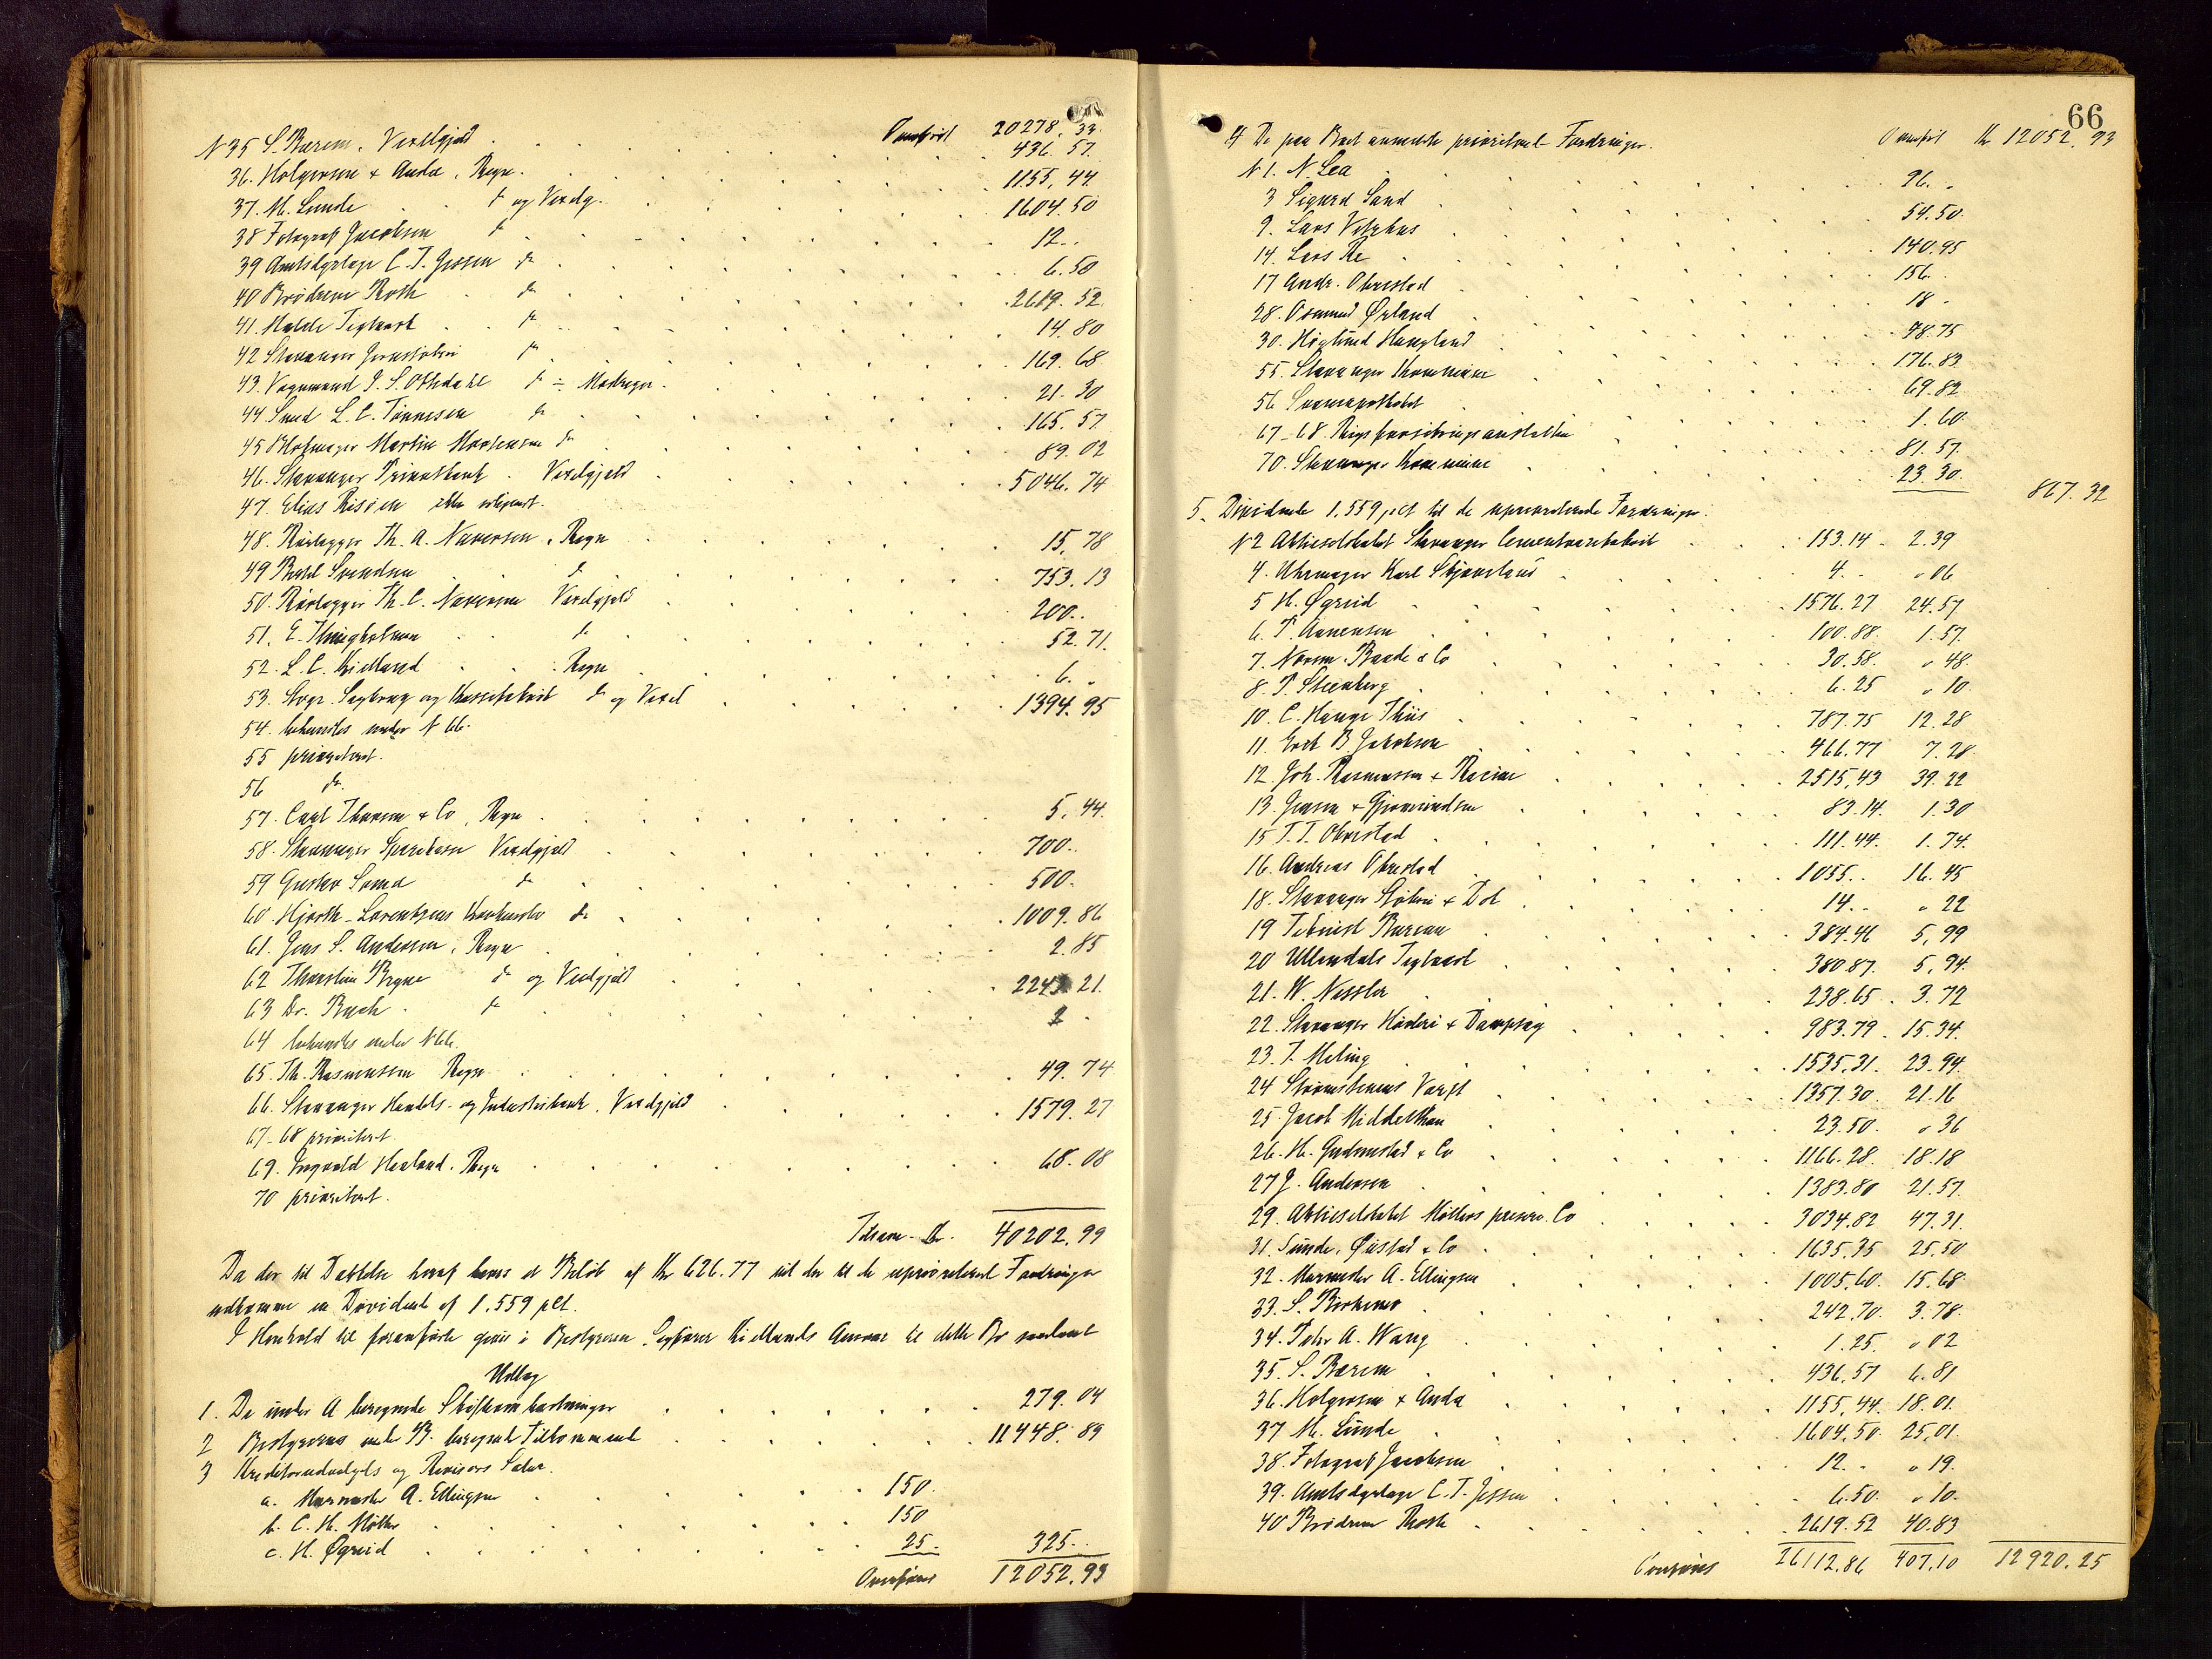 Overført 20278.33
N 35 S. Barem, Vexelgjæld . 436.57.
36. Holgersen & Anda, Regn. 1155,44.
37. M. Lunde do og Vexelg. 1604.50
38 Fotograf Jacobsen do 12..
39 Amtsdyrlæge C. T. Jessen do 6.50
40 Brødrene Roth do 2619.52.
41. Malde Teglværk do 14.80
42 Stavanger Jernstøberi do 169.68
43. Vognmand J. S. Othdahl do ÷ Modregn. 21.30
44 Smed L. C. Tønnesen do 165.57
45 Blokmager Martin Mortensen do 89.02
46. Stavanger Privatbank . Vexelgjæld 5046.74
47. Elias Risøen ikke
48. Rørlægger Th. A. Næversen, Regn 15,78
49 Bertel Svendsen do 753.13
50. Rørlægger Th. C. Næversen Vexelgjæld 200..
51. E. Thingholmen do 52.71.
52. L. C. Kielland . Regn 6. „
53. Svgr. Sagbrug og Kassefabrik do og Vexel 1394.95
54. behandles under N 66.
55 prioriteret.
56 do.
57. Carl Thorsen & Co, Regn 5,44.
58. Stavanger Sparekasse Vexelgjæld 700..
59 Gustav Sømd do 500.
60 Hjorth-Lorentzens do 1009.86
61. Jens S. Andersen, Regn 2.85
62 Thorstein Bryne do og Vexelgjæld 2243.21.
63 Dr. Buch do 2 .
64 behandles under N 66.
65. Th. Rasmussen Regn 49.74
66. Stavanger Handels- og Industribank, Vexelgjæld 1579.27
67-68 prioriteret.
69. Ingvald Haaland. Regn 68.08
70 prioriteret.
Tilsam. Kr. 40202.99
Da der til Dækkelse heraf haves et Beløb af Kr 626.77 vil der til de uprioriterede Fordringer
udkomme en Dividende af 1.559 pCt.
I Henhold til foranførte gives i Bestyreren, Sagfører Kiellands Ansvar til dette Bo saadant
Udlæg
1. De under A beregnede Skifteomkostninger 279.04
2 Bestyrerens under B. beregnede Tilkommende 11448.89
3 Kreditorudvalgets og Revisors Salær.
a. Murmester A. Ellingsen 150.
b. C. H. Møller 150
c. H. Øgreid 25. 325..
Overføres 12052.93
66
Overført Kr 12052.93
4 De paa Boet anmeldte prioriterede Fordringer.
N 1. N. Lea 96. „
3 Sigurd Sand 54.50.
9. Lars Vetrhus 140.95
14. Lars Re 156.
17 Andr. Obrestad 18 .
28. Osmund Øxland 48.75
30. Høglund Haugland 176.83
55. Stavanger Kommune 69.82
56 Svaneapotheket 1.60.
67-68. Rigsforsikringsanstalten 81.57.
70. Stavanger Kommune 23.30. 867.32
5. Dividende 1.559 pCt til de uprioriterede Fordringer.
N 2 Aktieselskabet Stavanger Cementvarefabrik 153.14 - 2.39
4. Uhrmager Karl Skjæveland 4. - „ 06
5 H. Øgreid 1576.27 24.57
6. P. Aanensen 100.88. 1.57.
7. Norem, Baade & Co 30.58. „ 48.
8. P. Steenberg 6.25 „ 10
10. C. Hauge Thiis 787.75 12.28
11. Erik B. Jakobsen 466.77 7.28
12. Joh. Rasmussen & Racine 2515,43 39.22
13. Jensen & Gjermundsen 83.14. 1.30
15 T. T. Obrestad 111.44. 1.74.
16. Andreas Obrestad 1055.. 16.45
18. Stavanger Støberi & Dok 14.. „ 22
19 Teknisk Bureau 384.46 5,99
20 Ullendals Teglværk 380.87. 5,94.
21. W. Nessler 238.65 . 3.72
22. Stavanger Høvleri & Dampsag 983.79 . 15.34.
23. T. Meling 1535,31. 23.94.
24 Strømsteens Værft 1357.30. 21.16
25. Jacob Middelthon 23.50. „ 36
26. H. Gudmestad & Co 1166.28. 18.18
27 J. Andersen 1383.80 21.57.
29. Aktieselskabet Møllers preserv. Co 3034.82 47.31.
31. Sunde, Øustad & Co 1635,35 25.50
32. Murmester A. Ellingsen 1005.60. 15.68.
33. S. Birkenes 242.70. 3.78.
34. Peder A. Wang 1.25. „ 02
35. S. Barem 436.57 6.81
36. Holgersen & Anda 1155,44. 18.01.
37 M. Lunde 1604,50. 25,01.
38. Fotograf Jacobsen 12. - „ 19.
39. Amtsdyrlæge C. T. Jessen 6.50. „ 10.
40 Brødrene Roth 2619.52 40.83
Overføres 26112.86 407.10 12920.25